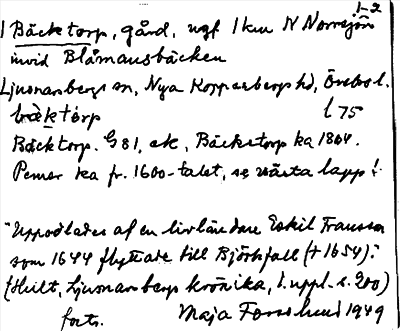 1-2
1 Bäcktorp, gård, ungf 1 km N Norrsjön
invid Blåmansbäcken
Ljusnarsbergs sn, Nya Kopparbergs hd, Örebro l.
bæktɔrp l 75
Bäcktorp. G 81, ek, Bäckstorp ka 1804.
Perner ka fr. 1600-talet, se nästa lapp!
"Uppodlades af en livländare Eskil Fransson
som 1644 flyttade till Björkfall († 1654)."
(Hult, Ljusnarsbergs krönika, 1. uppl. s. 200)
forts. Maja 1949